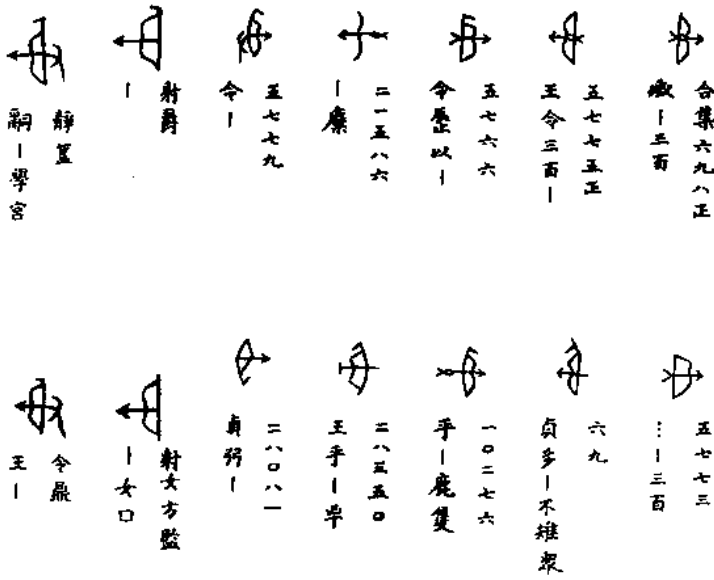 合集六九八正
三百
五七七五正
王令三百｜
五七六六
令𠂤以｜
二一五八六
｜麋
五七七九
令｜
射爵
｜
靜簋
嗣｜學宮
五七七三
…｜三百
六九
貞多｜不雉眾
一〇二七六
乎｜鹿隻
二八三五〇
王乎｜
二八〇八一
貞弜｜
射女方監
｜女口
令鼎
王｜